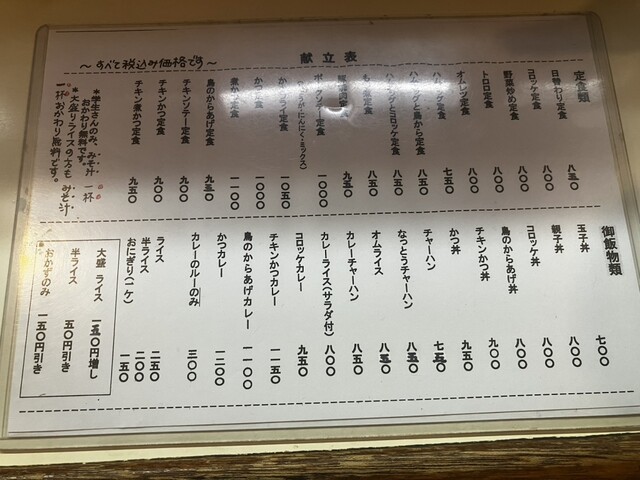 献立表
～すべて税込み価格です～
定食類
日替わり定食 八五〇
コロッケ定食 八〇〇
野菜炒め定食 八〇〇
トロロ定食 八〇〇
オムレツ定食 八〇〇
定食 七五〇
と鳥から定食 八五〇
ハムエッグとコロッケ定食 八五〇
定食 八五〇
定食 九五〇
ポークソテー定食 一〇〇〇
にんにく・ミックス)
定食 一〇五〇
かつ定食 一〇〇〇
煮かつ定食 一一〇〇
鳥のからあげ定食 九五〇
チキンソテー定食 九〇〇
チキンかつ定食 九〇〇
チキン煮かつ定食 九五〇
*学生さんのみ、みそ汁 一杯
おかわり無料です。
*大盛りライスの方も みそ汁
一杯おかわり無料です。
御飯物類
玉子丼 七〇〇
親子丼 八〇〇
コロッケ丼 八〇〇
鳥のからあげ丼 九〇〇
チキンかつ丼 九〇〇
かつ丼 九五〇
チャーハン 七五〇
なっとうチャーハン 八五〇
オムライス 八五〇
カレーチャーハン 八五〇
カレーライス(サラダ付) 八〇〇
コロッケカレー 九五〇
チキンかつカレー 一一五〇
鳥のからあげカレー 一一〇〇
かつカレー 一二〇〇
カレーのルーのみ 三〇〇
ライス 二五〇
半ライス 二〇〇
おにぎり(一ケ) 一五〇
大盛 ライス 一五〇円増し
半ライス 五〇円引き
おかずのみ 一五〇円引き